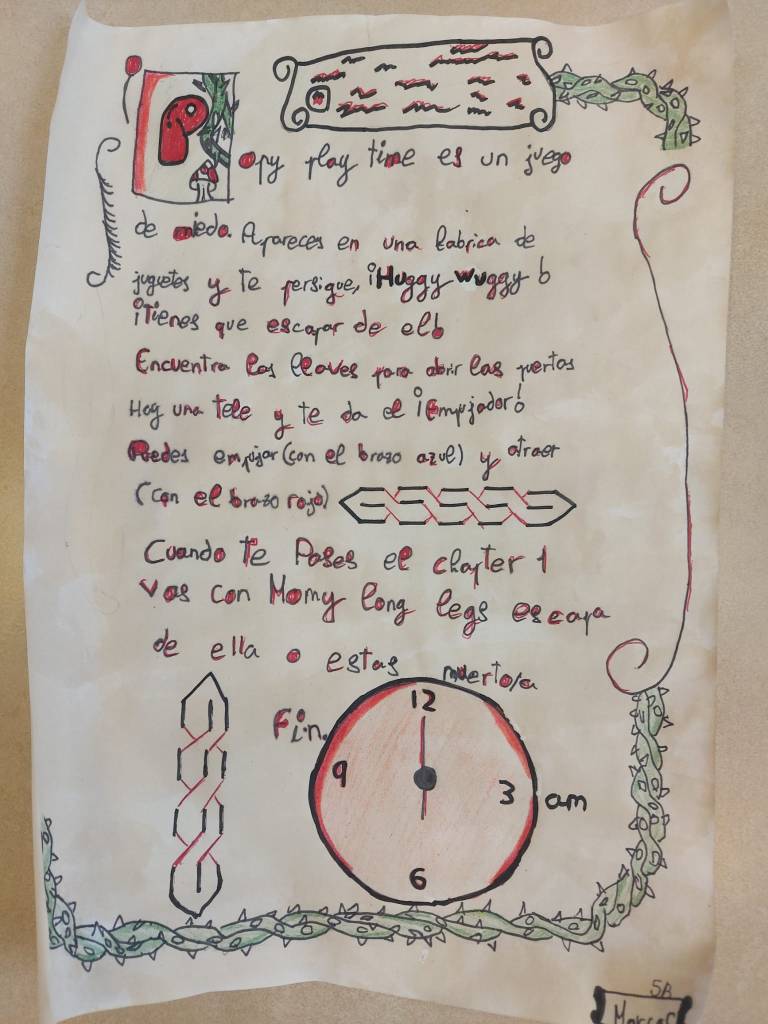 Popy play time es un juego
de miedo. Apareces en una fabrica de
juguetes y te persigue, ¡Huggy wuggy!
¡Tienes que escapar de el!
Encuentra las llaves para abrir las puertas
Hay una tele y te da el ¡Empujador!
Puedes empujar (con el brazo azul) y atraer
(con el brazo rojo)
Cuando te Pases el chapter 1
vas con Momy long legs escapa
de ella o estas muerto/a
Fin.
12
9
3
am
6
5A